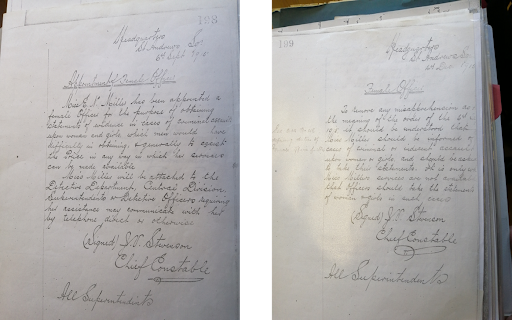 198
Headquarters
St. Andrews Sq.
6th Sept. 1915
Appointment of Female Officer
Miss E. N. Miller has been appointed a
female Officer for the purpose of obtaining
statements of evidence in cases of criminal assaults
upon women and girls, which men would have
difficulty in obtaining, & generally to assist
the Police in any way in which her services
can be made available
Miss Miller will be attached to the
Detective Department, Central Division.
Superintendents or Detective Officers requiring
her assistance may communicate with her
by telephone direct or otherwise
(Signed) J. V. Stevenson
Chief Constable
All Superintendents
199
Headquarters
St. Andrews Sq.
Female Officer
To remove any misapprehension as to
the meaning of the order of the 6th
it is should be understood that
Miss Miller should be informed of
cases of criminal or indecent assaults
upon women or girls and should be asked
to take their statements. It is only when
Miss Miller's services are not available
that Officers should take the statements
of women or girls in such cases
(Signed) J. V. Stevenson
Chief Constable
All Superintendents